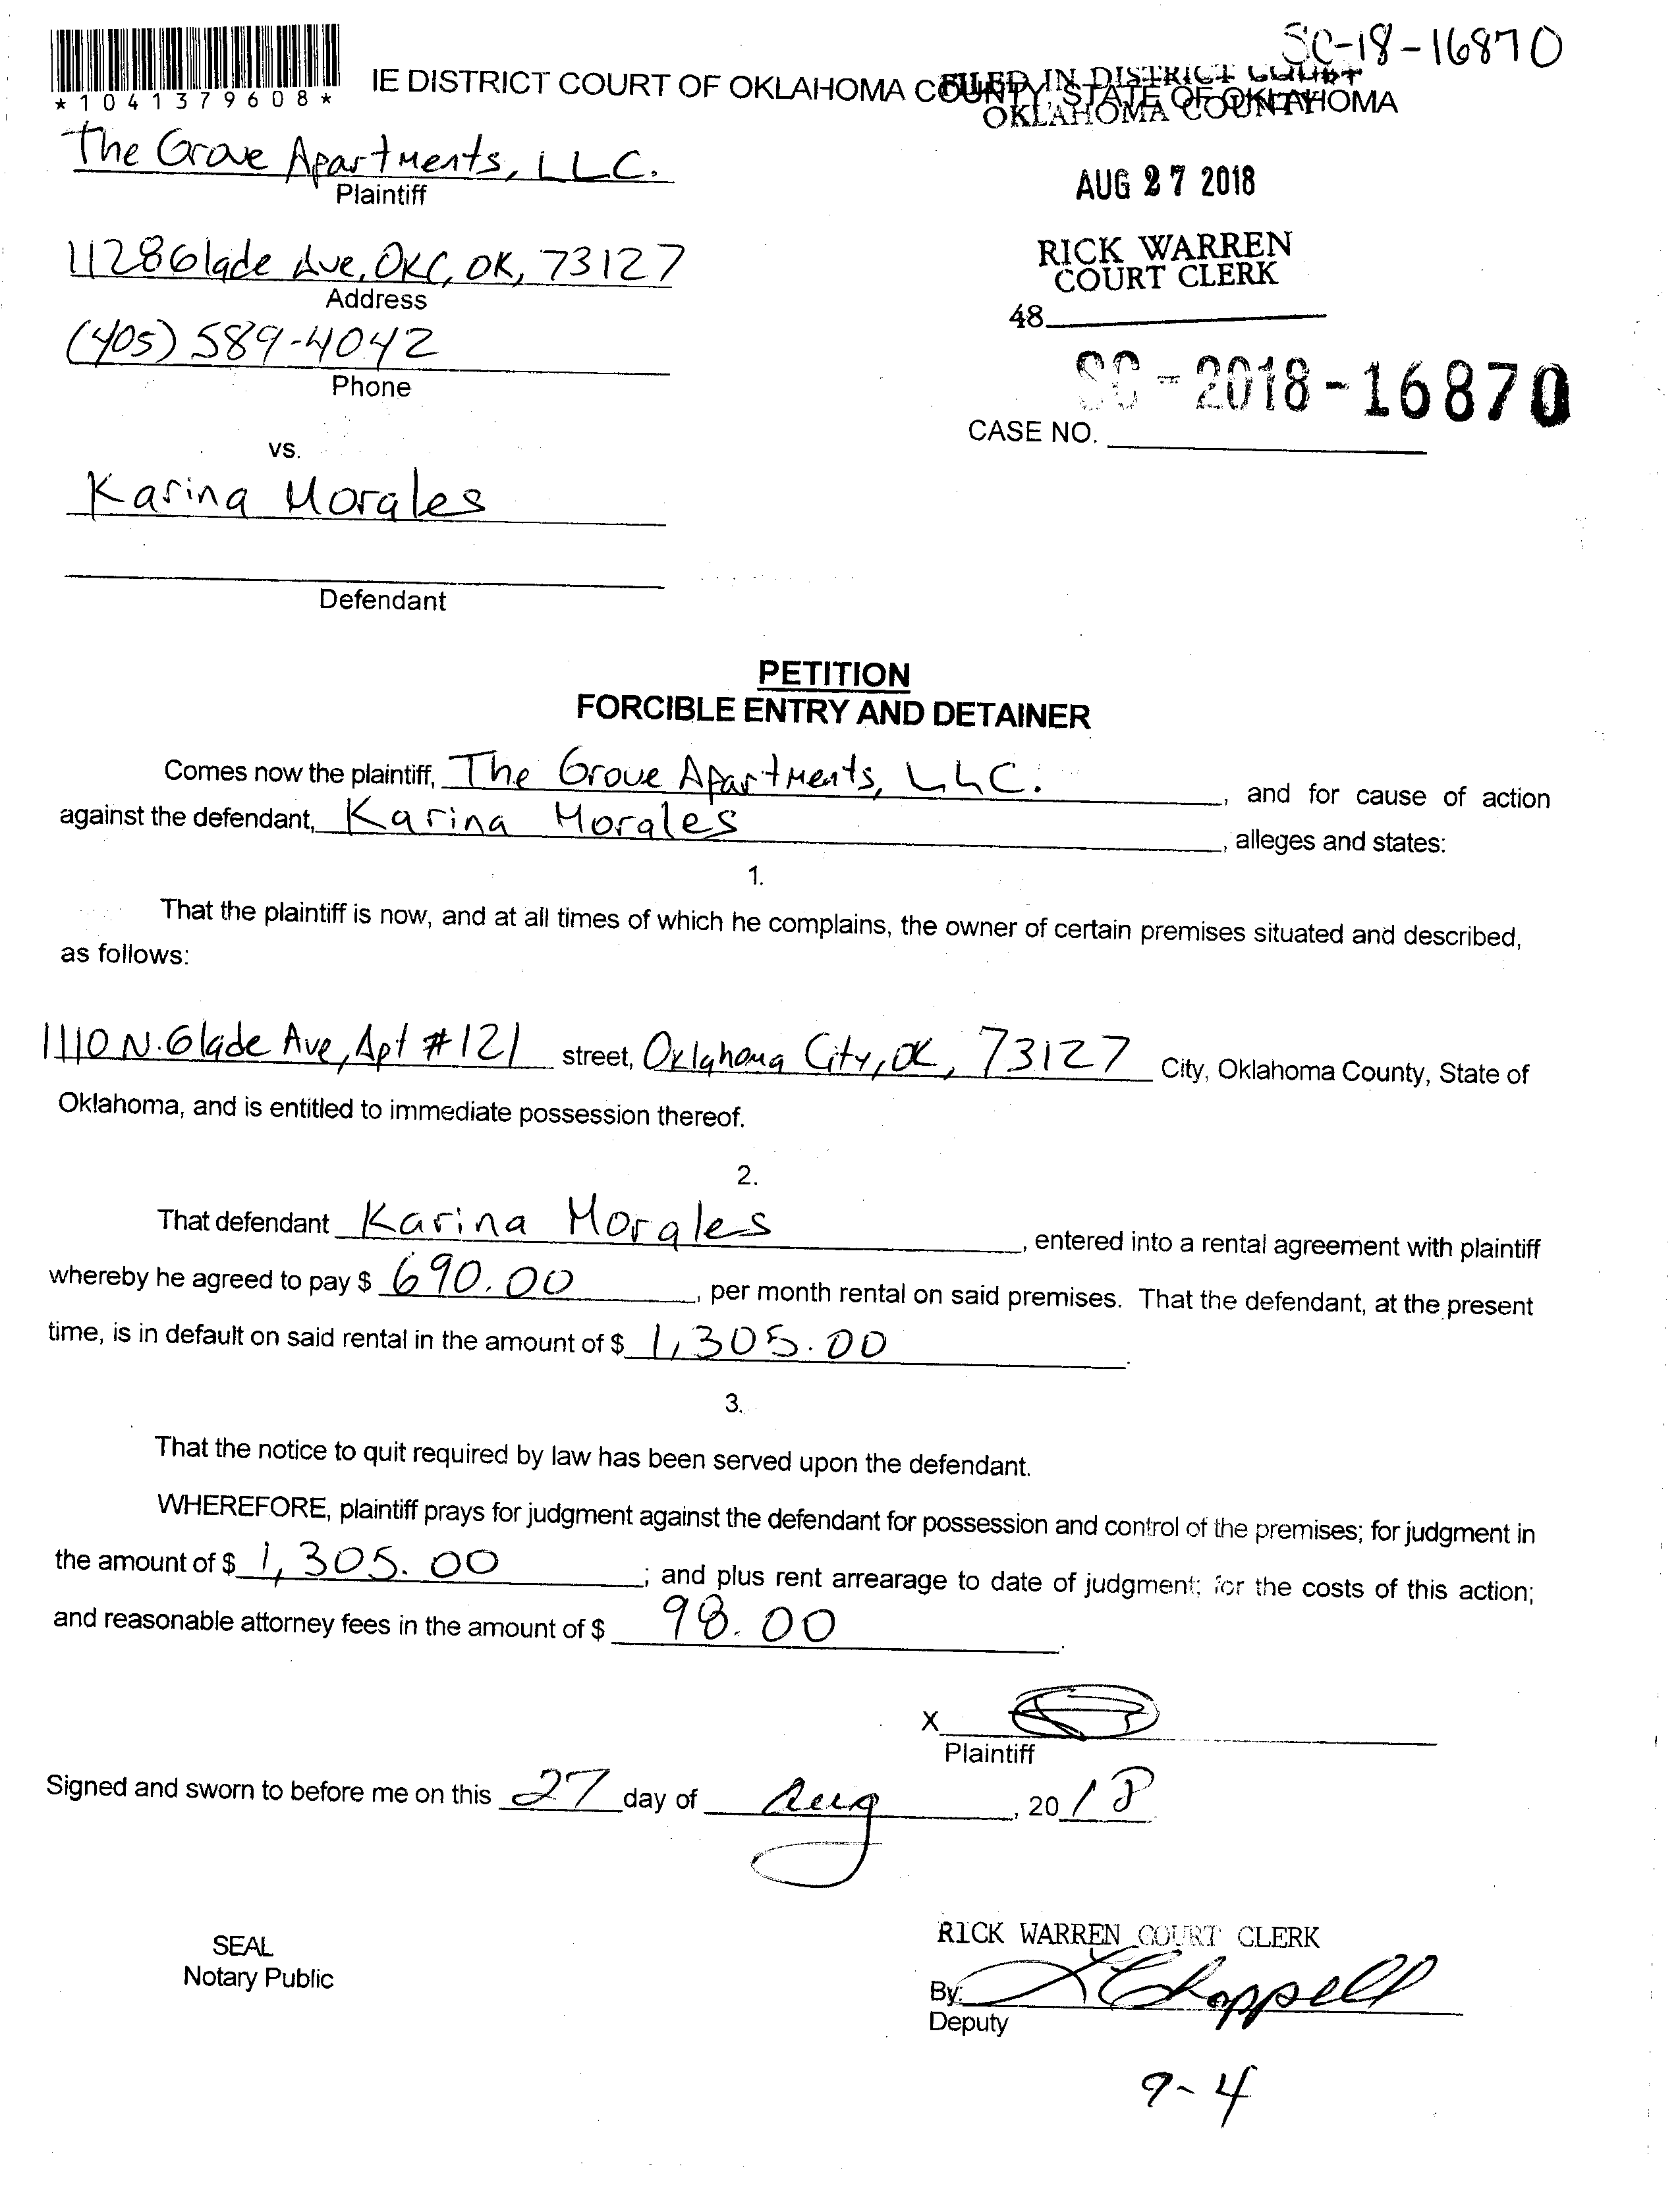 SC-18-16870
*1041379608*
IE DISTRICT COURT OF OKLAHOMA COUNTY, STATE OF OKLAHOMA
FILED IN DISTRICT COURT
OKLAHOMA COUNTY
The Grove Apartments, LLC.
Plaintiff
AUG 27 2018
1128 Glade Ave, OKC, OK, 73127
Address
RICK WARREN
COURT CLERK
48
(405) 589-4042
Phone
SC-2018-16870
CASE NO.
vs.
Karina Morales
Defendant
PETITION
FORCIBLE ENTRY AND DETAINER
Comes now the plaintiff, The Grove Apartments, LLC. , and for cause of action
against the defendant, Karina Morales , alleges and states:
1.
That the plaintiff is now, and at all times of which he complains, the owner of certain premises situated and described,
as follows:
1110 N. Glade Ave, Apt #121 street, Oklahoma City, OK, 73127 City, Oklahoma County, State of
Oklahoma, and is entitled to immediate possession thereof.
2.
That defendant Karina Morales , entered into a rental agreement with plaintiff
whereby he agreed to pay $ 690.00 , per month rental on said premises. That the defendant, at the present
time, is in default on said rental in the amount of $ 1,305.00 .
3.
That the notice to quit required by law has been served upon the defendant.
WHEREFORE, plaintiff prays for judgment against the defendant for possession and control of the premises; for judgment in
the amount of $ 1,305.00 ; and plus rent arrearage to date of judgment; for the costs of this action;
and reasonable attorney fees in the amount of $ 98.00 .
X
Plaintiff
Signed and sworn to before me on this 27 day of Aug , 20 18
SEAL
Notary Public
RICK WARREN COURT CLERK
By: Chappell
Deputy
9-4